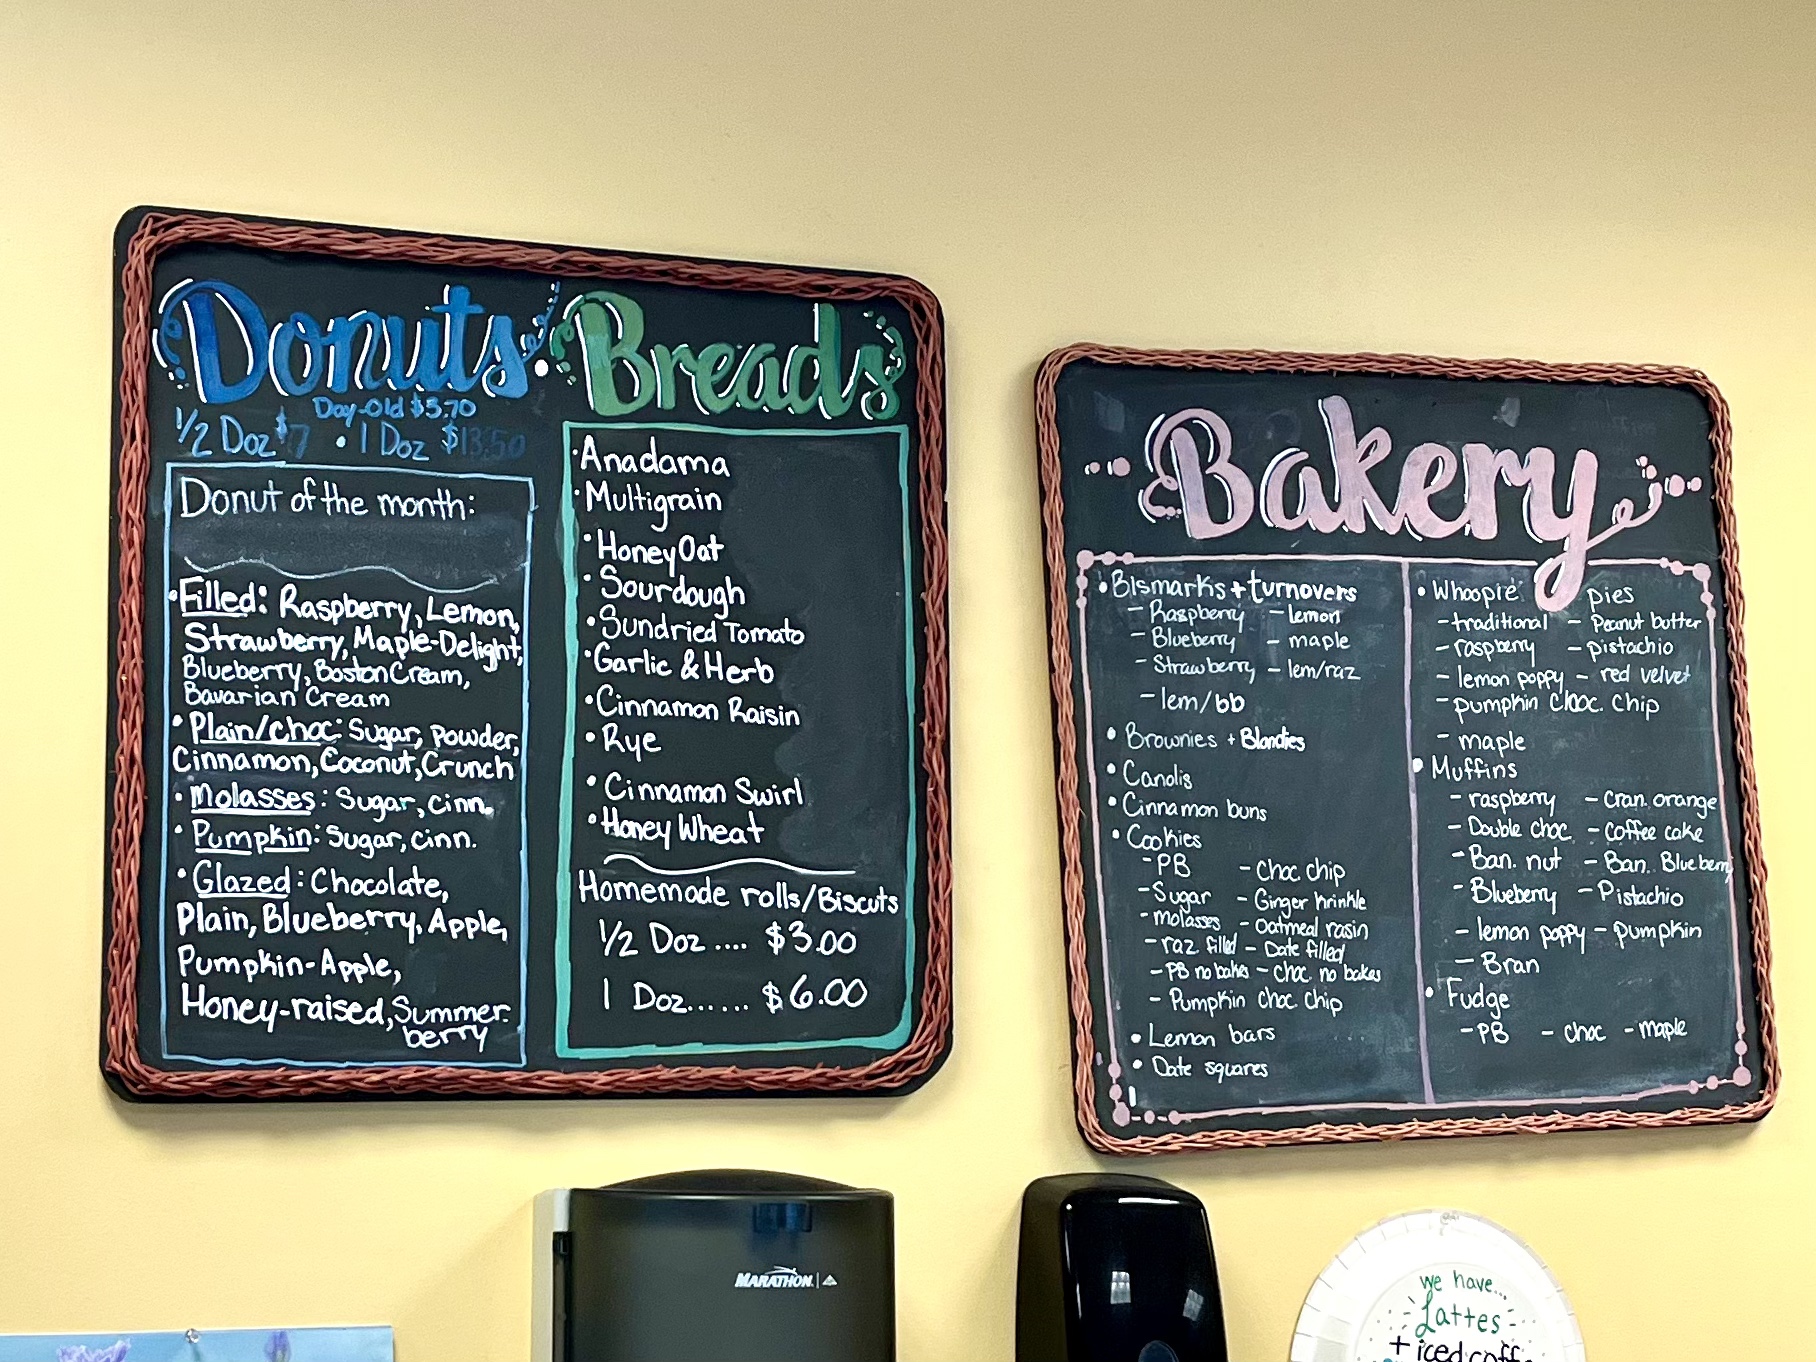 Donuts
Day-Old $3.70
1/2 Doz $7 • 1 Doz $13.50
Donut of the month:
•Filled: Raspberry, Lemon,
Strawberry, Maple-Delight,
Blueberry, Boston Cream,
Bavarian Cream
• Plain/choc: Sugar, Powder,
Cinnamon, Coconut, Crunch
• Molasses: Sugar, cinn.
• Pumpkin: Sugar, cinn.
• Glazed: Chocolate,
Plain, Blueberry, Apple,
Pumpkin-Apple,
Honey-raised, Summer-
berry
• Breads
•Anadama
•Multigrain
•Honey Oat
•Sourdough
•Sundried Tomato
•Garlic & Herb
•Cinnamon Raisin
•Rye
•Cinnamon Swirl
•Honey Wheat
Homemade rolls/Biscuts
1/2 Doz .... $3.00
1 Doz...... $6.00
Bakery
• Bismarks + turnovers
- Raspberry - lemon
- Blueberry - maple
- Strawberry - lem/raz
- lem/bb
• Brownies + Blondies
• Canolis
• Cinnamon buns
• Cookies
- PB - Choc chip
- Sugar - Ginger krinkle
- molasses - Oatmeal rasin
- raz. filled - Date filled
- PB no bakes - choc. no bakes
- Pumpkin choc chip
• Lemon bars
• Date squares
• Whoopie pies
- traditional - Peanut butter
- raspberry - pistachio
- lemon poppy - red velvet
- pumpkin choc. chip
- maple
• Muffins
- raspberry - Cran. orange
- Double choc. - coffee cake
- Ban. nut - Ban. Blueberry
- Blueberry - Pistachio
- lemon poppy - pumpkin
- Bran
• Fudge
- PB - choc - maple
MARATHON
we have...
Lattes
+ iced coff